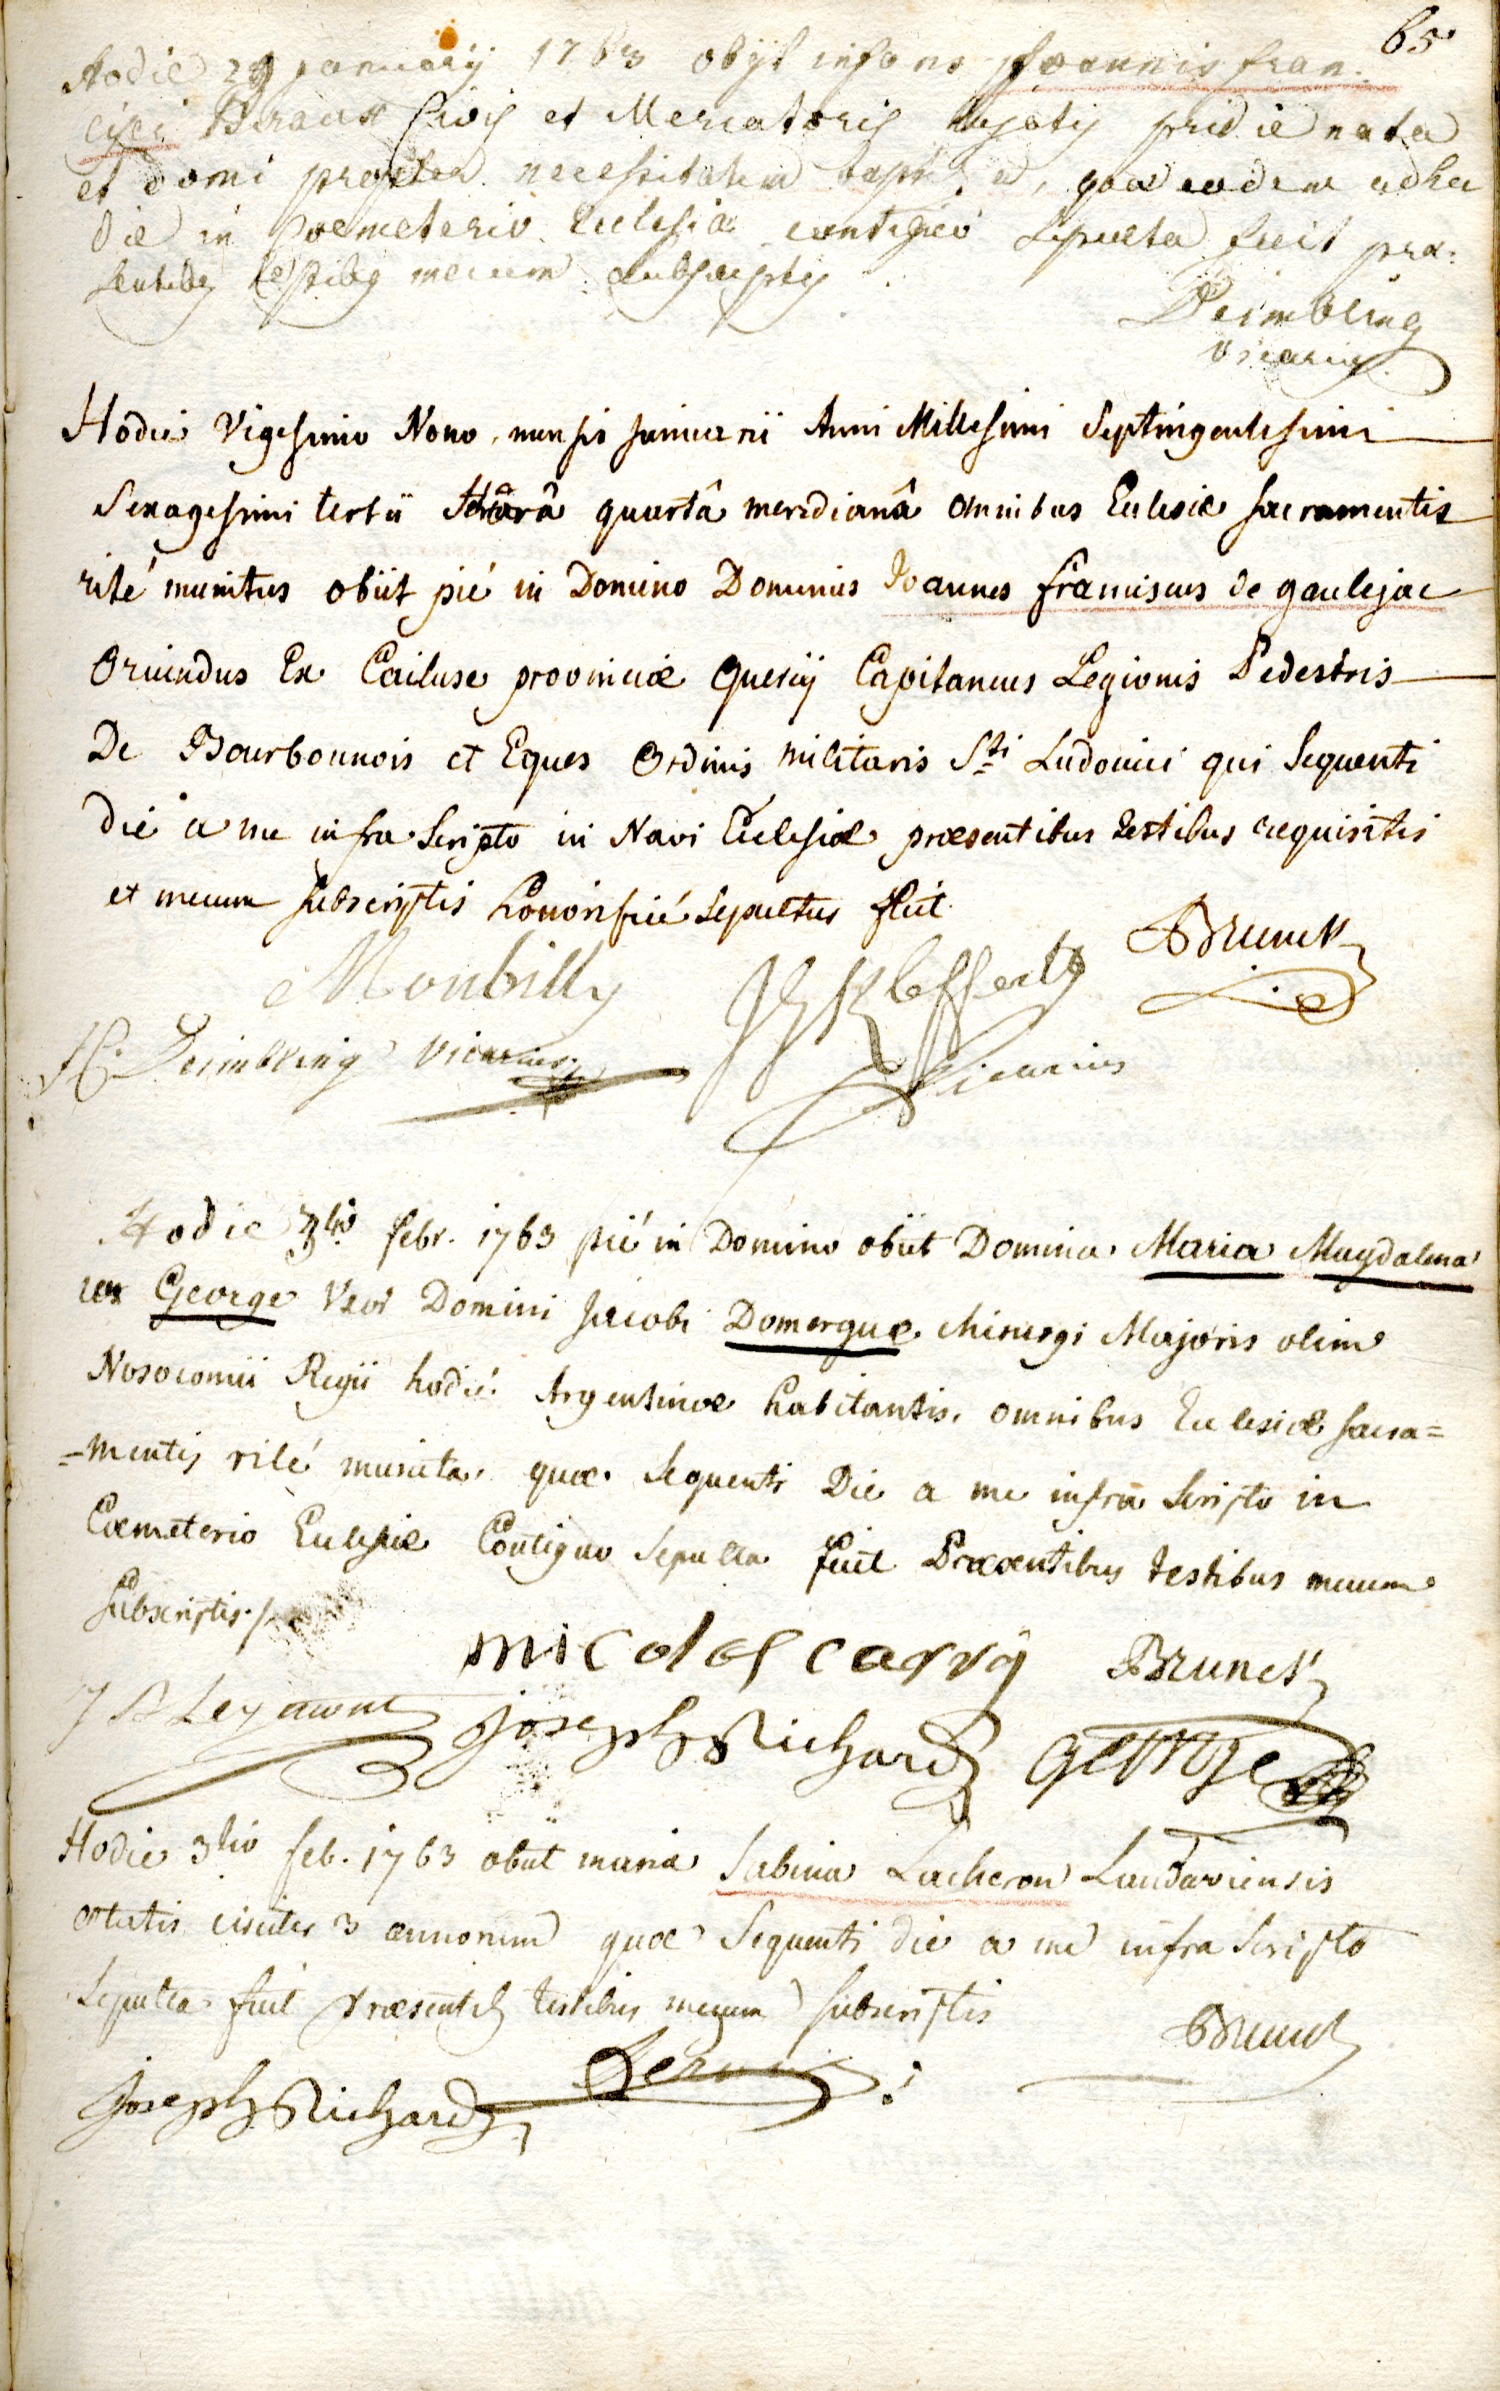 65
Hodie 29 januarÿ 1763 obÿt infans Joannis fran-
cisci Braux Civis et Mercatoris hujatis pridie nata
et domi propter necessitatem bapt: a, quae eodem adhuc
die in Coemeterio Ecclesiae contiguo Sepulta fuit prae-
sentibus testibus mecum subscriptis
Deimbling
vicarius
Hodie Vigesimo Nono mensis januarii Anni Millesimi Septingentesimi
Sexagesimi tertii Horâ quartâ meridianâ Omnibus Eclesiae sacramentis
rité munitus obiit pié in Domino Dominus Joannes franciscus de gaulejac
Oriundus Ex Cailuse provinciae Quercÿ Capitaneus Legionis Pedestris
De Bourbonnois et Eques Ordinis militaris Sti Ludovici qui Sequenti
die a me infra Scripto in Navi Ecclesiae praesentibus testibus requisitis
et mecum subscriptis honorificé Sepultus fuit
Brunck
Monbilly
H. Deimbling vicarius
Vicarius
Hodie 3tio febr. 1763 pié in Domino obiit Domina Maria Magdalena
George Uxor Domini Jacobi Domergue chirurgi Majoris olim
Nosocomii Regii hodié Argentinae habitantis, omnibus Eclesiae sacra=
=mentis rité munita, quae Sequenti Die a me infra Scripto in
Caemeterio Eclesiae Contiguo Sepulta fuit Praesentibus testibus mecum
Subscriptis
nicolas carrÿ Brunck
Joseph Richard george
Hodie 3tio feb. 1763 obiit maria Sabina Lacheron Landaviensis
aetatis circiter 3 annorum quae Sequenti die a me infra Scripto
Sepulta fuit praesentib testibus mecum subscriptis
Brunck
Joseph Richard